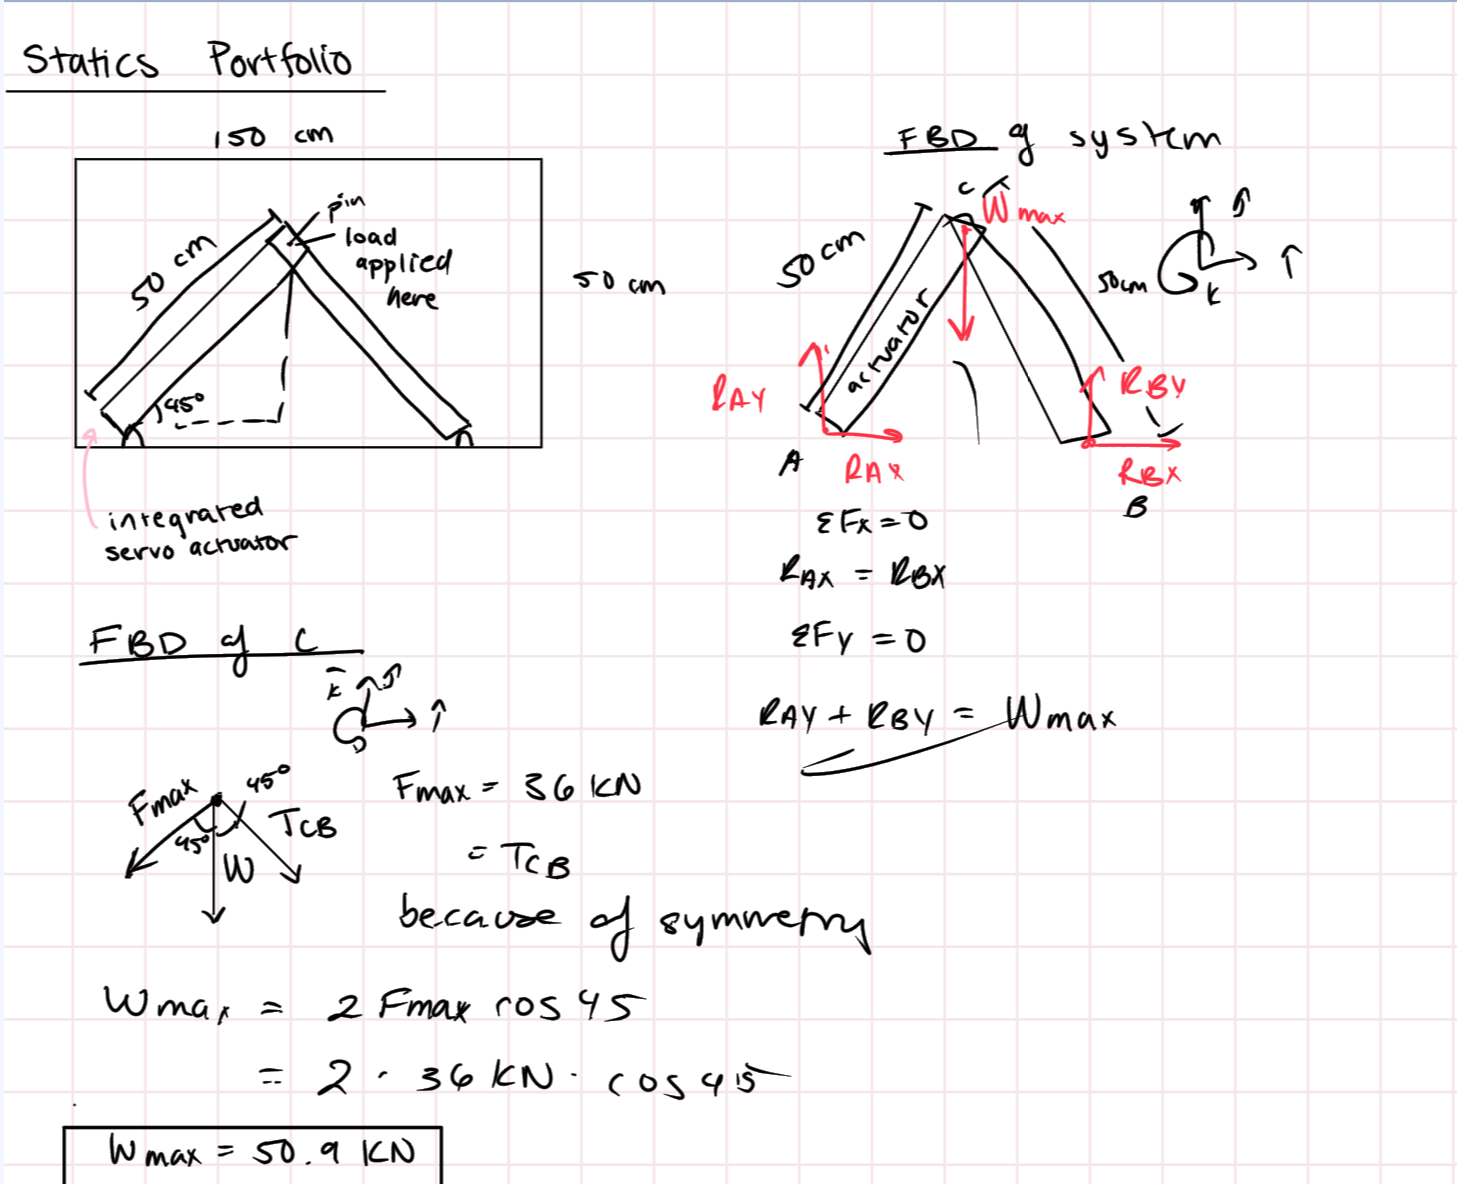 Statics Portfolio
150 cm
pin
load
applied
here
50 cm
50 cm
45°
integrated
servo actuator
FBD of system
C
W max
50 cm
actuator
50cm
ĵ
î
k
RAY
RBY
A
RAX
RBX
B
ΣFx = 0
RAX = RBX
ΣFy = 0
RAY + RBY = Wmax
FBD of C
k
ĵ
î
Fmax
45°
45°
TCB
W
Fmax = 36 KN
= TCB
because of symmetry
Wmax = 2 Fmax cos 45
= 2 · 36 KN · cos 45
Wmax = 50.9 KN